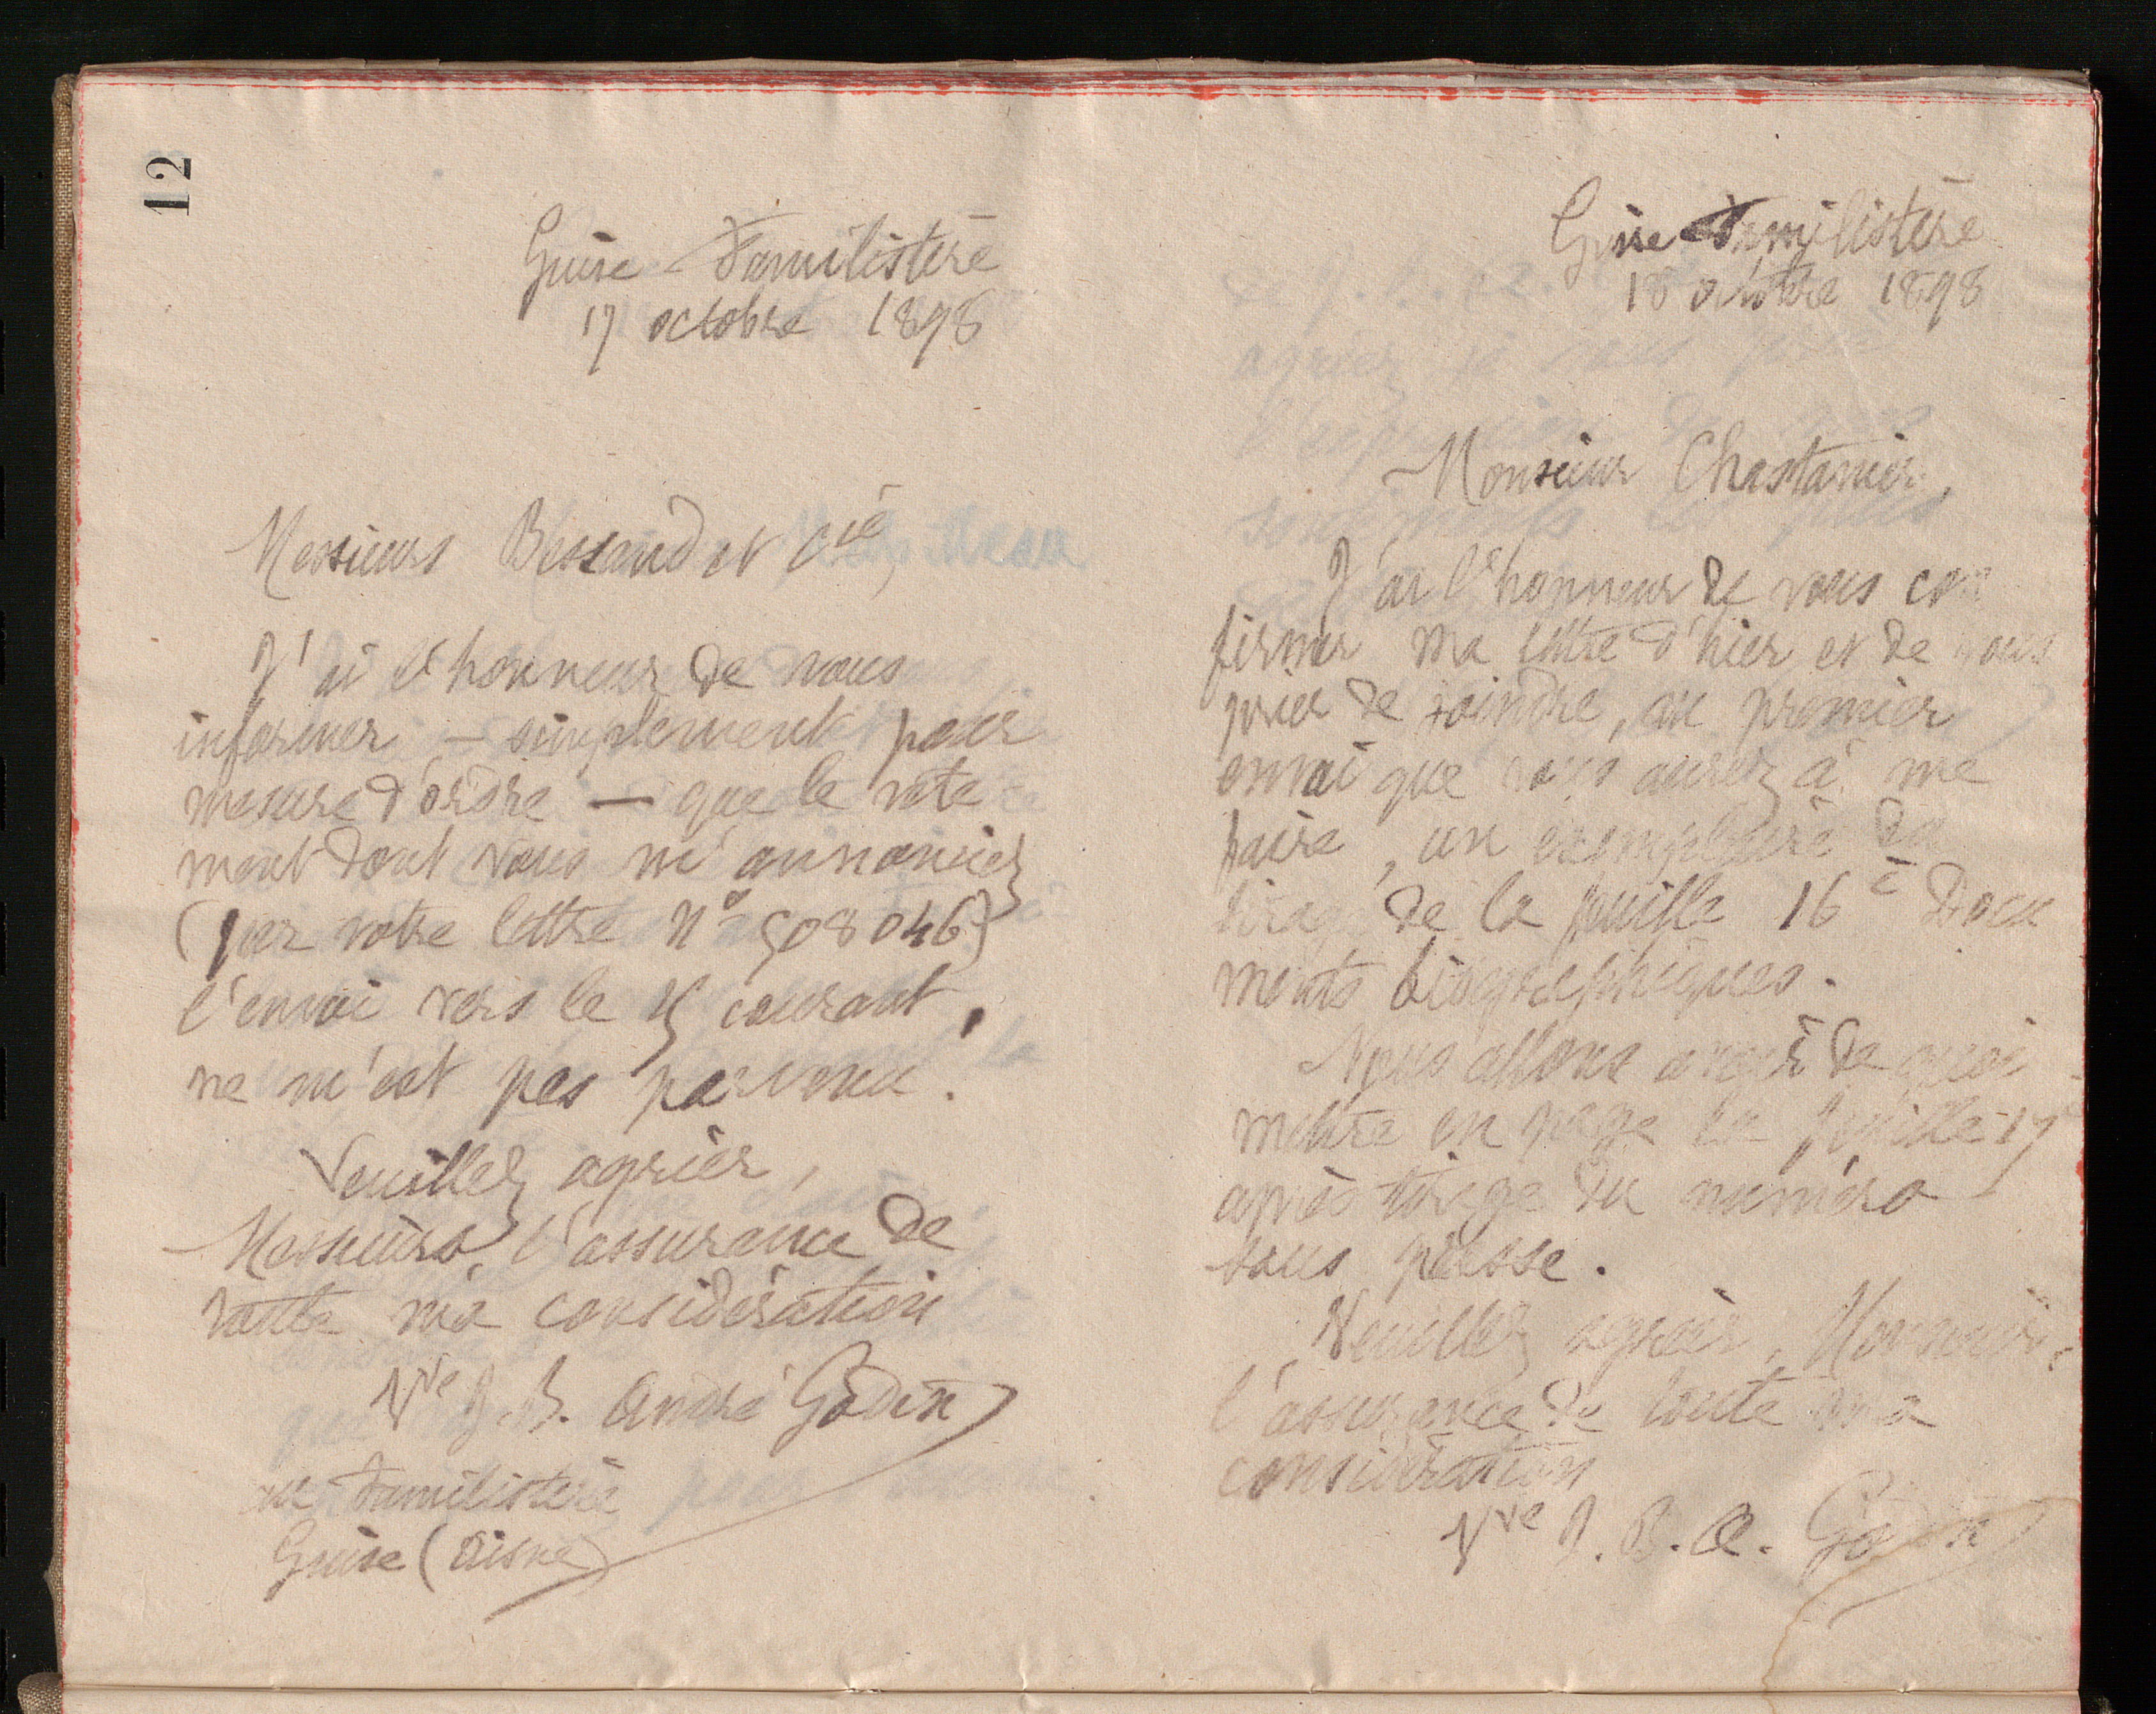 12
Guise Familistère
17 octobre 1898
Messieurs Bessand et Cie,
J'ai l'honneur de vous
informer — simplement pour
mesure d'ordre — que le vête
ment dont vous m'annonciez
(par votre lettre No 508046)
l'envoi vers le 15 courant,
ne m'est pas parvenu.
Veuillez agréer,
Messieurs, l'assurance de
toute ma considération
Vve J. B. André Godin
au Familistère
Guise (Aisne)
Guise Familistère
18 octobre 1898
Monsieur Chastanier,
J'ai l'honneur de vous con
firmer ma lettre d'hier et de vous
prier de joindre, au premier
envoi que vous aurez à me
faire, un exemplaire du
tirage de la feuille 16e Docu
ments biographiques.
Nous allons avoir de quoi
mettre en page la feuille 17
après tirage du numéro
sous presse.
Veuillez agréer, Monsieur,
l'assurance de toute ma
considération
Vve J. B. A. Godin